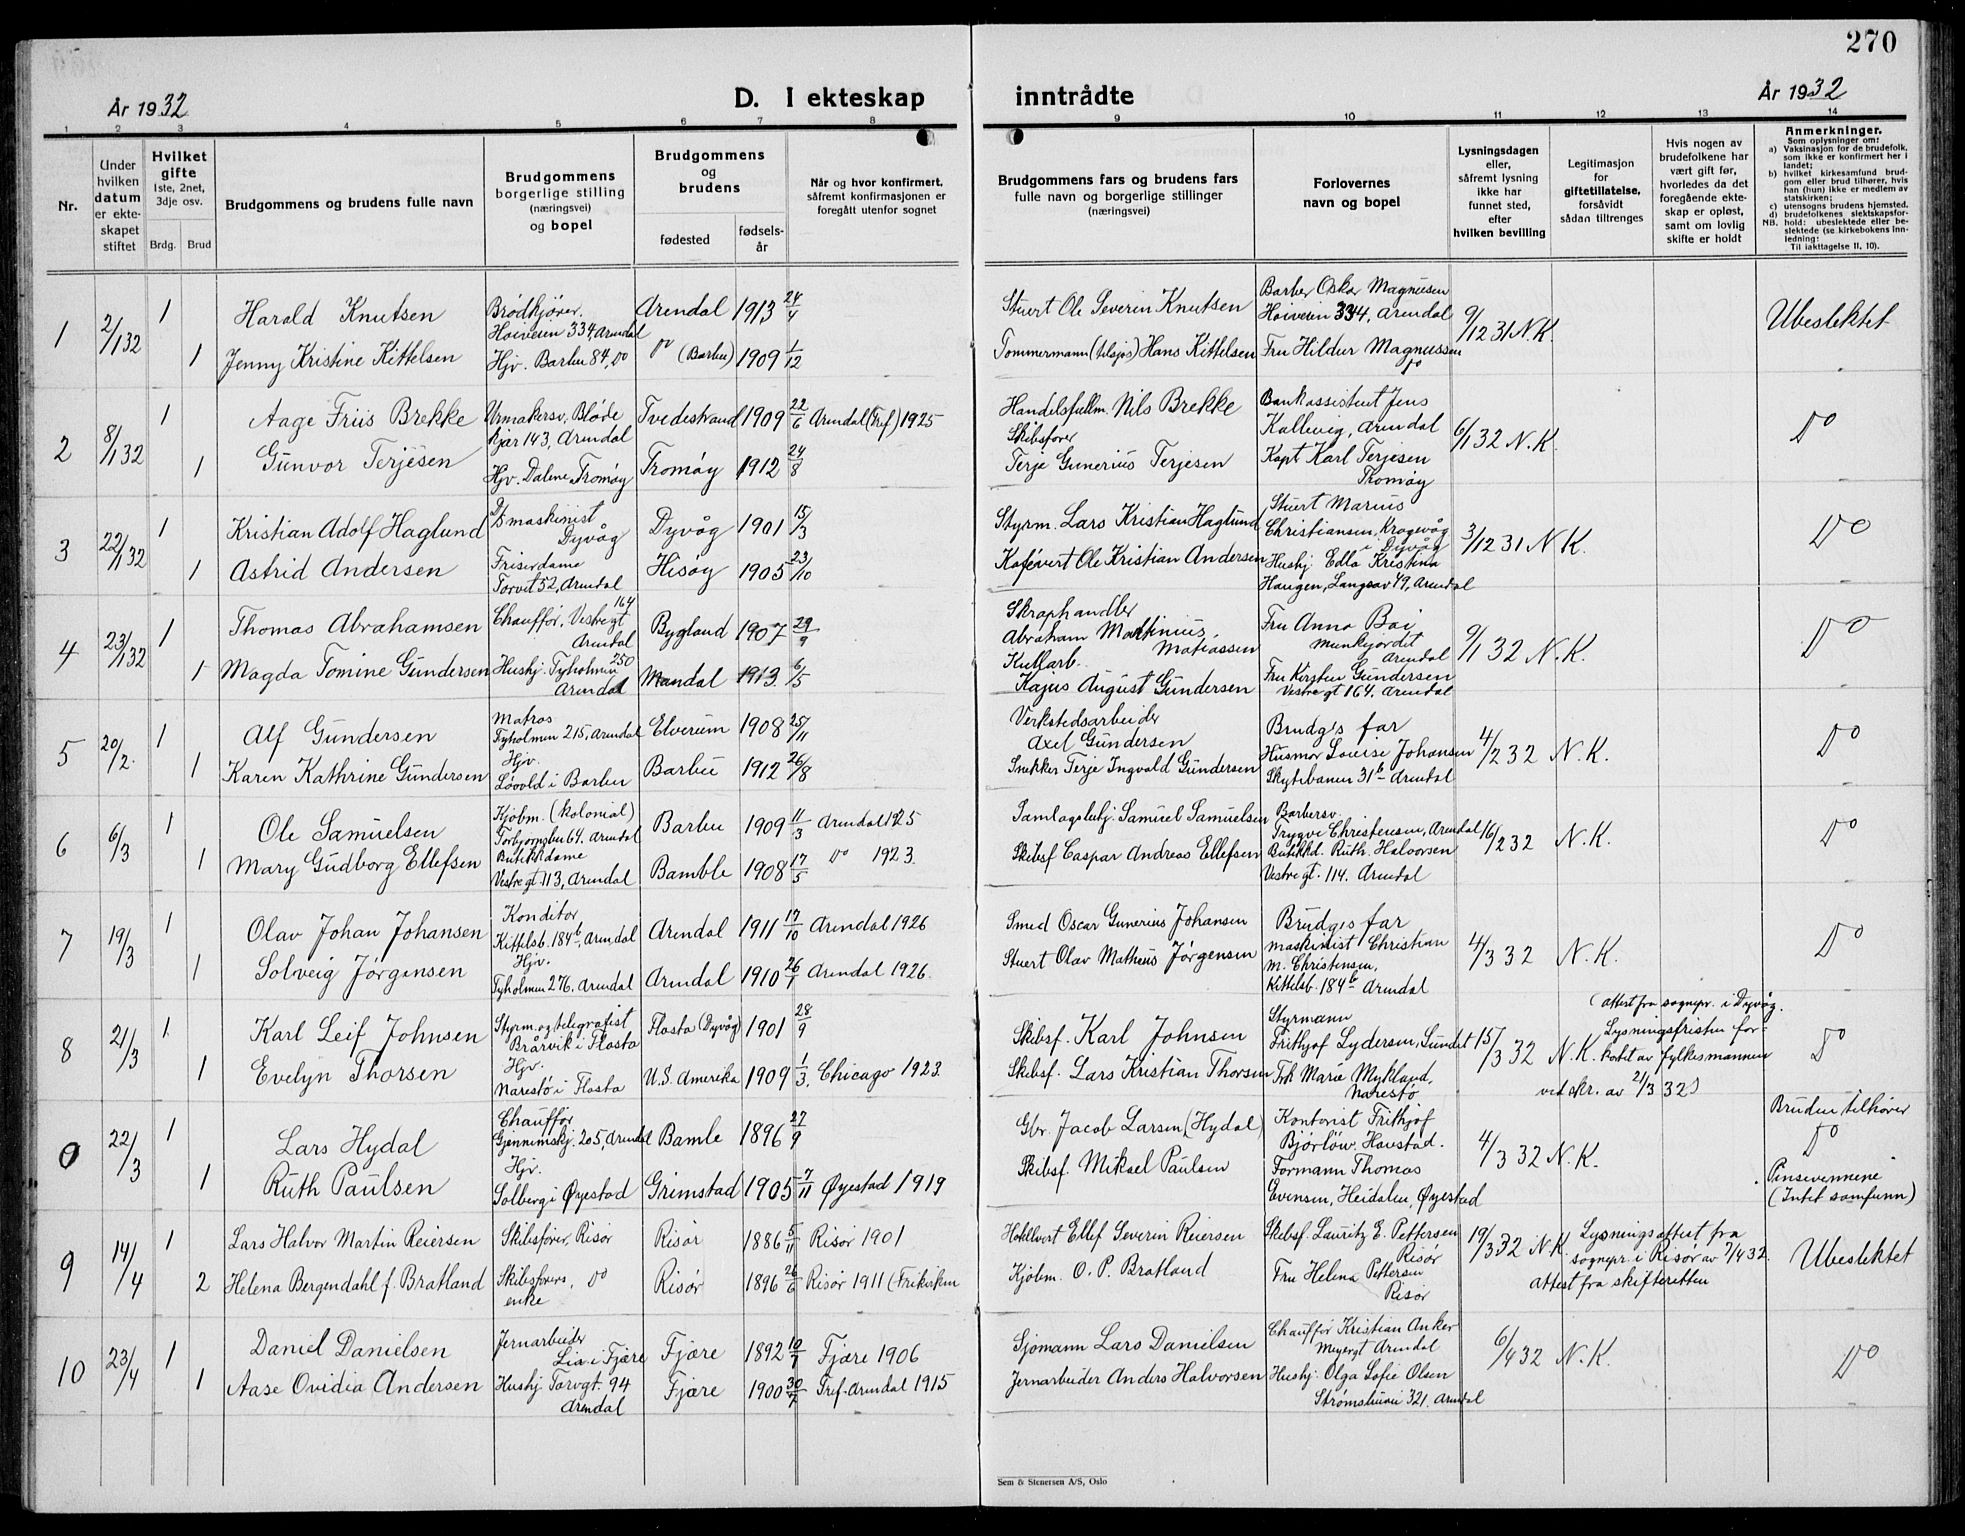 270
År 1932
D. I ekteskap inntrådte
År 1932
1 2 3 4 5 6 7 8 9 10 11 12 13 14
Nr.
Under hvilken datum er ekteskapet stiftet
Hvilket gifte
1ste, 2net, 3dje osv.
Brdg. Brud
Brudgommens og brudens fulle navn
Brudgommens borgerlige stilling (næringsvei) og bopel
Brudgommens og brudens
fødested
fødselsår
Når og hvor konfirmert, såfremt konfirmasjonen er foregått utenfor sognet
Brudgommens fars og brudens fars fulle navn og borgerlige stillinger (næringsvei)
Forlovernes navn og bopel
Lysningsdagen eller, såfremt lysning ikke har funnet sted, efter hvilken bevilling
Legitimasjon for giftetillatelse, forsåvidt sådan tiltrenges
Hvis nogen av brudefolkene har vært gift før, hvorledes da det foregående ekteskap er opløst, samt om lovlig skifte er holdt
Anmerkninger.
Som oplysninger om:
a) Vaksinasjon for de brudefolk, som ikke er konfirmert her i landet;
b) hvilket kirkesamfund brudgom eller brud tilhører, hvis han (hun) ikke er medlem av statskirken;
c) utensogns brudens hjemsted.
d) brudefolkenes slektskapsforhold: ubeslektede eller beslektede (se kirkebokens innledning:
NB.
Til iakttagelse II, 10).
1 2/1 32 1 Harald Knutsen Brødkjører. Høiveien 334, Arendal Arendal 1913 24/4 Stuert Ole Severin Knutsen Barber Oskar Magnussen Høiveien 334, Arendal 9/12 31 N.K. Ubeslektet
1 Jenny Kristine Kittelsen Hjv. Barbu 84, do do (Barbu) 1909 1/12 Tømmermann (tilsjøs) Hans Kittelsen Fru Hildur Magnussen do
2 8/1 32 1 Aage Friis Brekke Urmakersv, Blødekjær 143, Arendal Tvedestrand 1909 22/6 Arendal (Fref) 1925 Handelsfullm. Nils Brekke Bankassistent Jens Kallevig, Arendal 6/1 32 N.K. Do
1 Gunvor Terjesen Hjv. Dalene Tromøy Tromøy 1912 24/8 Skibsfører Terje Gunerius Terjesen Kapt Karl Terjesen Tromøy
3 22/1 32 1 Kristian Adolf Haglund D/s maskinist Dyvåg Dyvåg 1901 15/3 Styrm. Lars Kristian Haglund Stuert Marius Christiansen, Kragevåg i Dyvåg 3/12 31 N.K. Do
1 Astrid Andersen Friserdame Torvet 52, Arendal Hisøy 1905 23/10 Kafévert Ole Kristian Andersen Hushj. Edla Kristina Haugen, Langsæv 49, Arendal
4 23/1 32 1 Thomas Abrahamsen Chauffør, Vestregt 164 Arendal Bygland 1907 29/9 Skraphandler Abraham Martinius Matiassen Fru Anna Boi Munkejordet Arendal 9/1 32 N.K. Do
1 Magda Tomine Gundersen Hushj. Tyholmen 250 Arendal Mandal 1913 6/5 Kullarb. Kajus August Gundersen Fru Kirsten Gundersen Vestregt 164. Arendal
5 20/2. 1 Alf Gundersen Matros Tyholmen 215, Arendal Elverum 1908 25/11 Verkstedsarbeider Axel Gundersen Brudg's far 4/2 32 N.K. Do
1 Karen Kathrine Gundersen Hjv. Løvold i Barbu Barbu 1912 26/8 Snekker Terje Ingvald Gundersen Husmor Louise Johansen Skytebanen 31b Arendal
6 6/3 1 Ole Samuelsen Kjøbm. (kolonial) Torbjørnsbu 64. Arendal Barbu 1909 11/3 Arendal 1925 Samlagsbstj. Samuel Samuelsen Barbersv. Trygve Christensen, Arendal 16/2 32 N.K. Do
1 Mary Gudborg Ellefsen Butikkdame Vestregt 113, Arendal Bamble 1908 17/5 Do 1923. Skibsf Caspar Andreas Ellefsen Butikkd. Ruth Halvorsen Vestregt. 114. Arendal
7 19/3 1 Olav Johan Johansen Konditor Kittelsb. 184b, Arendal Arendal 1911 17/10 Arendal 1926 Smed Oscar Gunerius Johansen Brudg's far 4/3 32 N.K. Do
1 Solveig Jørgensen Hjv. Tyholmen 276. Arendal Arendal 1910 26/7 Arendal 1926. Stuert Olav Matheus Jørgensen maskinist Christian M. Christensen, Kittelsb. 184b Arendal
8 21/3 1 Karl Leif Johnsen Styrm. og telegrafist Brårvik i Flosta Flosta (Dyvåg) 1901 28/9 Skibsf. Karl Johnsen Styrmann Frithjof Lydersen, Sundet 15/3 32 N.K. (Attest fra sognepr. i Dyvåg. Lysningsfristen forkortet av fylkesmannen ved skr. av 21/3 32) Do
1 Evelyn Thorsen Hjv. Narestø i Flosta U.S. Amerika 1909 1/3. Chicago 1923. Skibsf. Lars Kristian Thorsen Frk Marie Mykland, Narestø
0 22/3 1 Lars Hydal Chauffør Gjennemskj. 205, Arendal Bamle 1896 27/9 Gbr. Jacob Larsen (Hydal) Kontorist Frithjof Bjørløw, Havstad. 4/3 32 N.K. Do
1 Ruth Paulsen Hjv. Solberg i Øyestad Grimstad 1905 7/11 Øyestad 1919 Skibsf. Mikael Paulsen Formann Thomas Evensen, Heidalen, Øyestad Bruden tilhører Pinsevennene (Intet samfunn)
9 14/4 1 Lars Halvor Martin Reiersen Skibsfører, Risør Risør 1886 5/11 Risør 1901 Hotellvert Ellef Severin Reiersen Skibsf. Lauritz E. Pettersen Risør 19/3 32 N.K. Lysningsattest fra sognepr. i Risør av 7/4 32. Attest fra skifteretten Ubeslektet
2 Helena Bergendahl f. Bratland Skibsførers enke, do Risør 1896 26/6 Risør 1911 (Frikirken Kjøbm. O. P. Bratland Fru Helena Pettersen Risør
10 23/4 1 Daniel Danielsen Jernarbeider Lia i Fjære Fjære 1892 10/7 Fjære 1906 Sjømann Lars Danielsen Chauffør Kristian Anker Meyergt Arendal 6/4 32 N.K. Do
1 Aase Ovidia Andersen Hushj Torvgt. 94 Arendal Fjære 1900 30/7 Fref. Arendal 1915 Jernarbeider Anders Halvorsen Hushj. Olga Sofie Olsen Strømsbuvei 321. Arendal
Sem & Stenersen A/S, Oslo